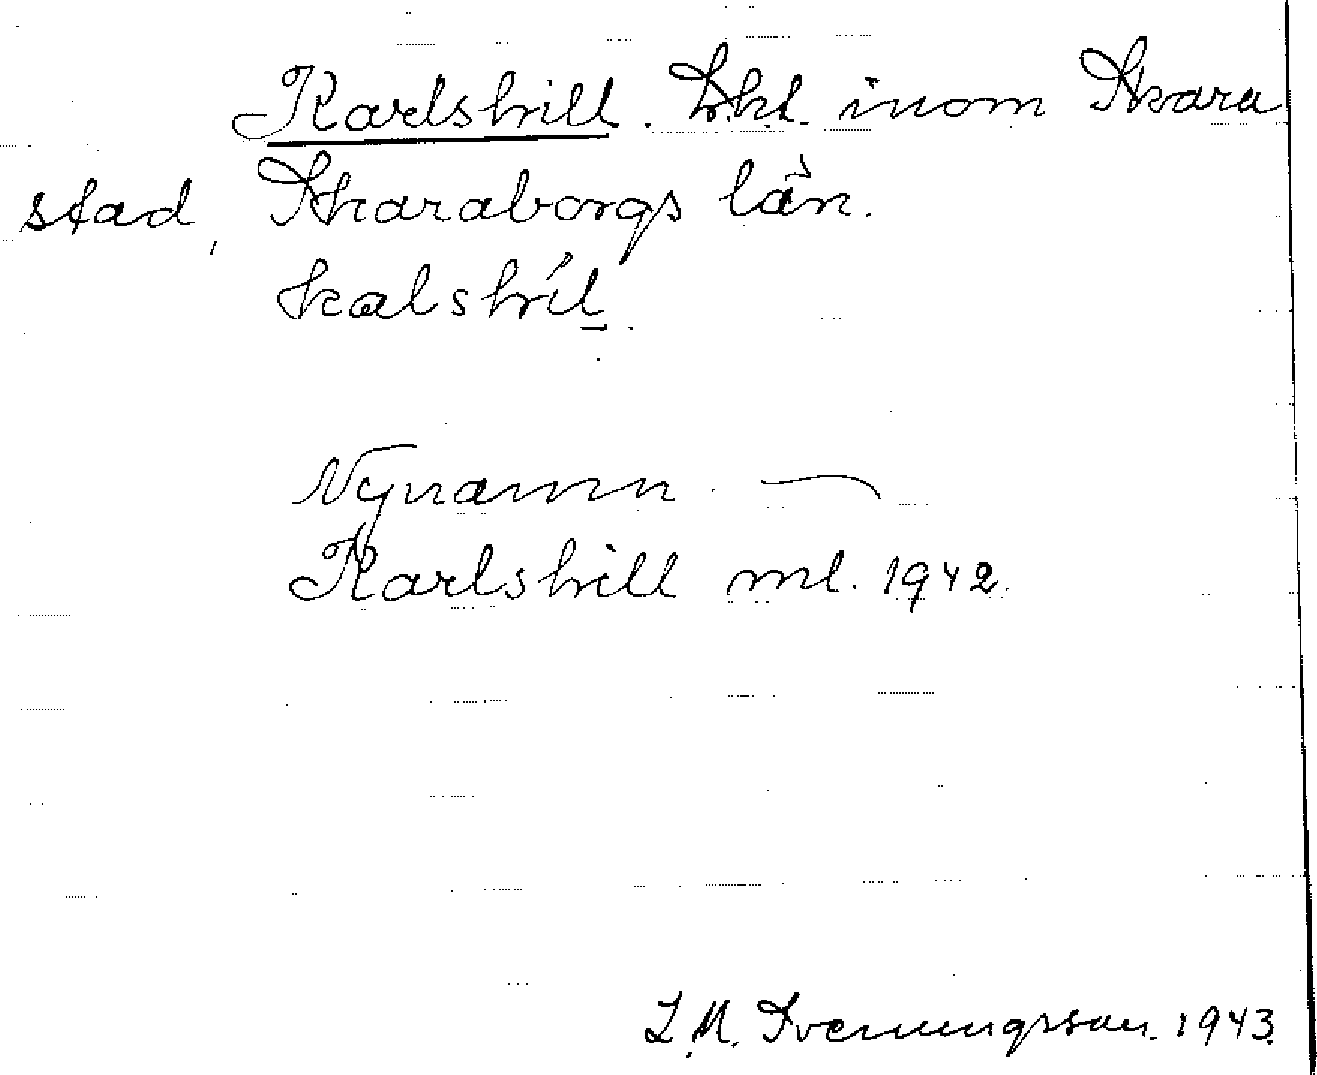 Karlshill. Lht. inom Skara
stad, Skaraborgs län.
kalshíl
Nynamn.
Karlshill ml. 1942.
L.M. Svenungsson. 1943.